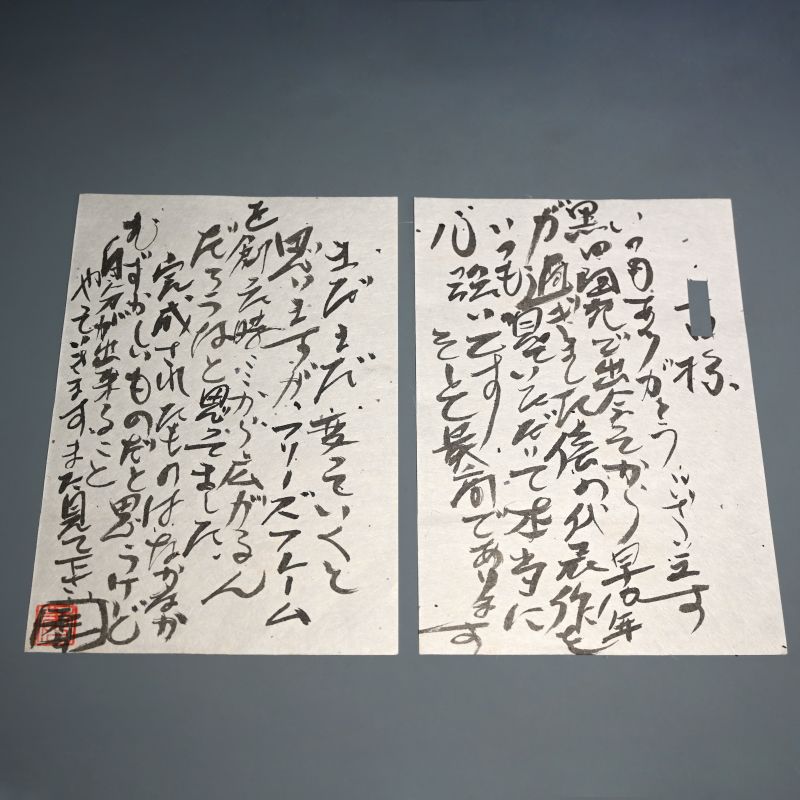 様
いつもありがとうございます
黒田陶苑で出会ってから早10年
が過ぎました 僕の代表作を
いつも 見ていただいて本当に
心強いです そして 最高であります
まだまだ変っていくと
思いますが、フリーズフレーム
を創った時……から広がるん
だろうなと思ってました
完成されたものはなかなか
むずかしいものだと思うけど
自分が出来ること
やっていきます、また見て下さい